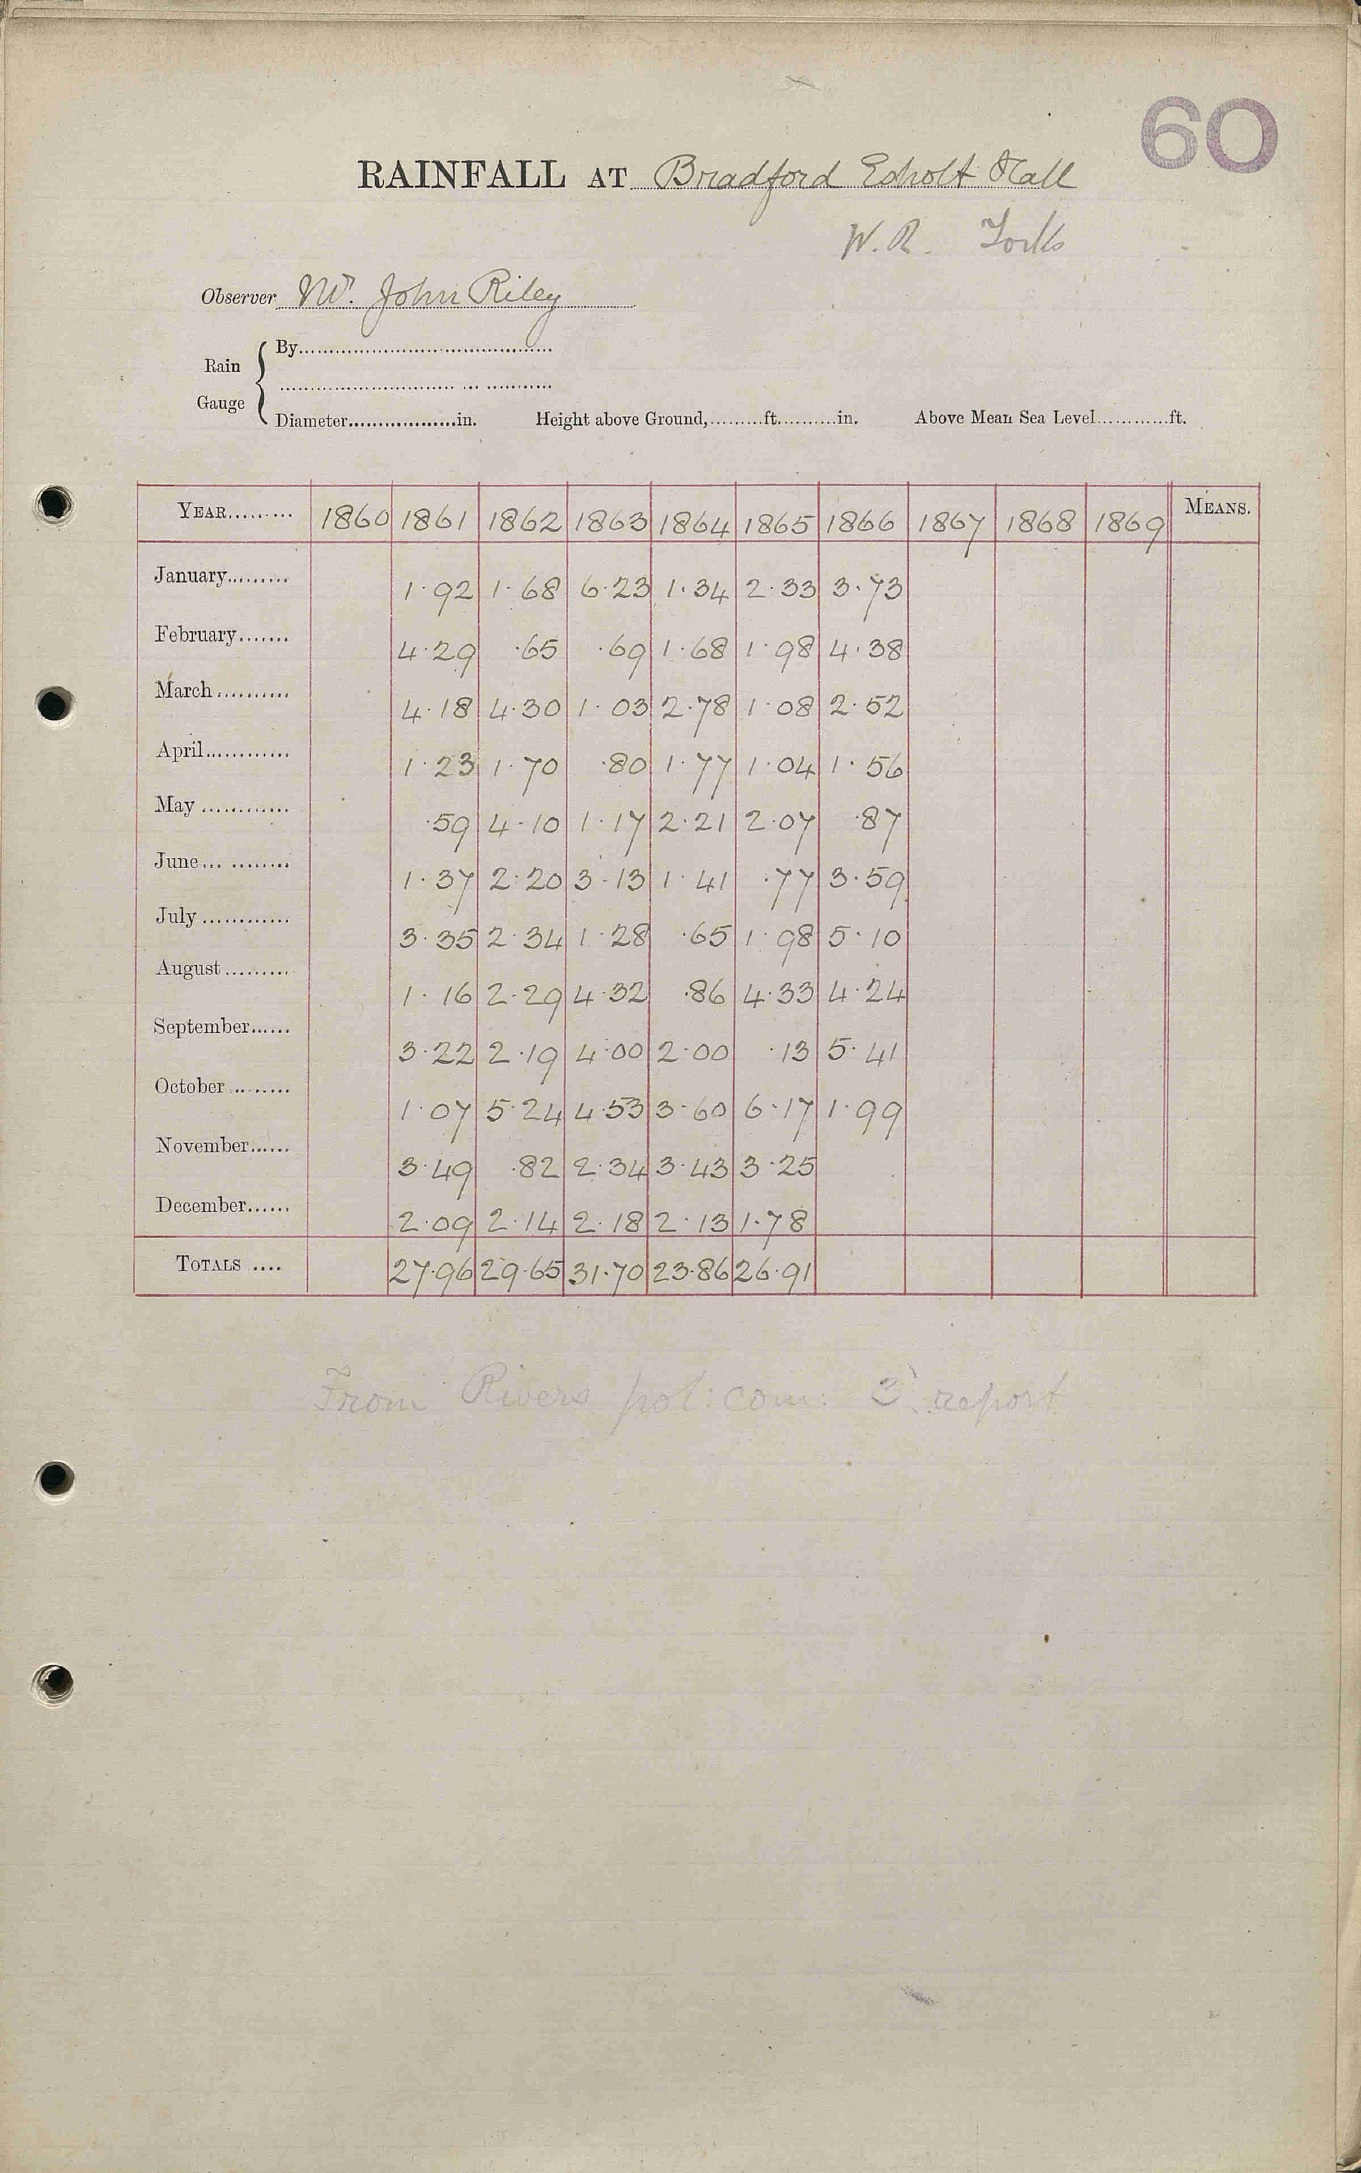 60
RAINFALL AT Bradford Esholt Hall
W.R. Yorks
Observer Mr. John Riley
Rain Gauge { By
Diameter in. Height above Ground, ft. in. Above Mean Sea Level ft.
YEAR 1860 1861 1862 1863 1864 1865 1866 1867 1868 1869 MEANS.
January 1.92 1.68 6.23 1.34 2.33 3.73
February 4.29 .65 .69 1.68 1.98 4.38
March 4.18 4.30 1.03 2.78 1.08 2.52
April 1.23 1.70 .80 1.77 1.04 1.56
May .59 4.10 1.17 2.21 2.07 .87
June 1.37 2.20 3.13 1.41 .77 3.59
July 3.35 2.34 1.28 .65 1.98 5.10
August 1.16 2.29 4.32 .86 4.33 4.24
September 3.22 2.19 4.00 2.00 .13 5.41
October 1.07 5.24 4.53 3.60 6.17 1.99
November 3.49 .82 2.34 3.43 3.25
December 2.09 2.14 2.18 2.13 1.78
TOTALS 27.96 29.65 31.70 23.86 26.91
From Rivers pol: com: 3 report